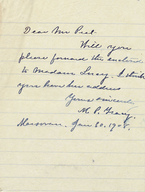 Dear Mr Peet.
Will you
please forward the enclosed
to Madam Lucy. I think
you have her address
Yours sincerely
M. P.
Jan 30. 19